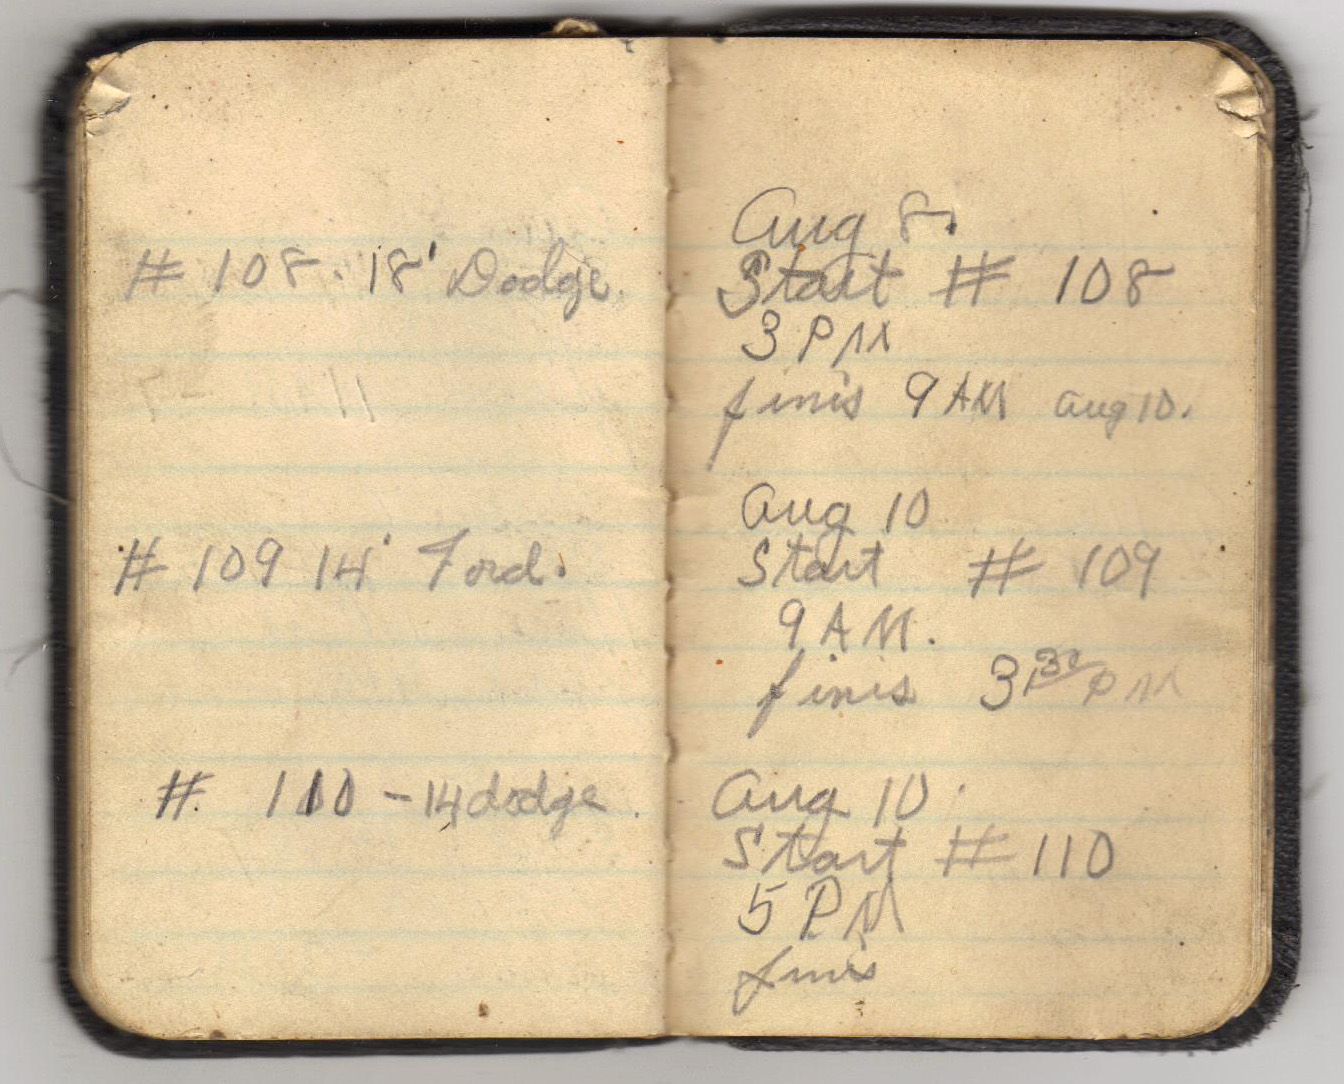 # 108. 18' Dodge.
# 109 14' Ford.
# 110 - 14 dodge.
Aug 8.
Start # 108
3 PM
finis 9 AM Aug 10.
Aug 10
Start # 109
9 AM.
finis 3 30 PM
Aug 10.
Start # 110
5 PM
finis